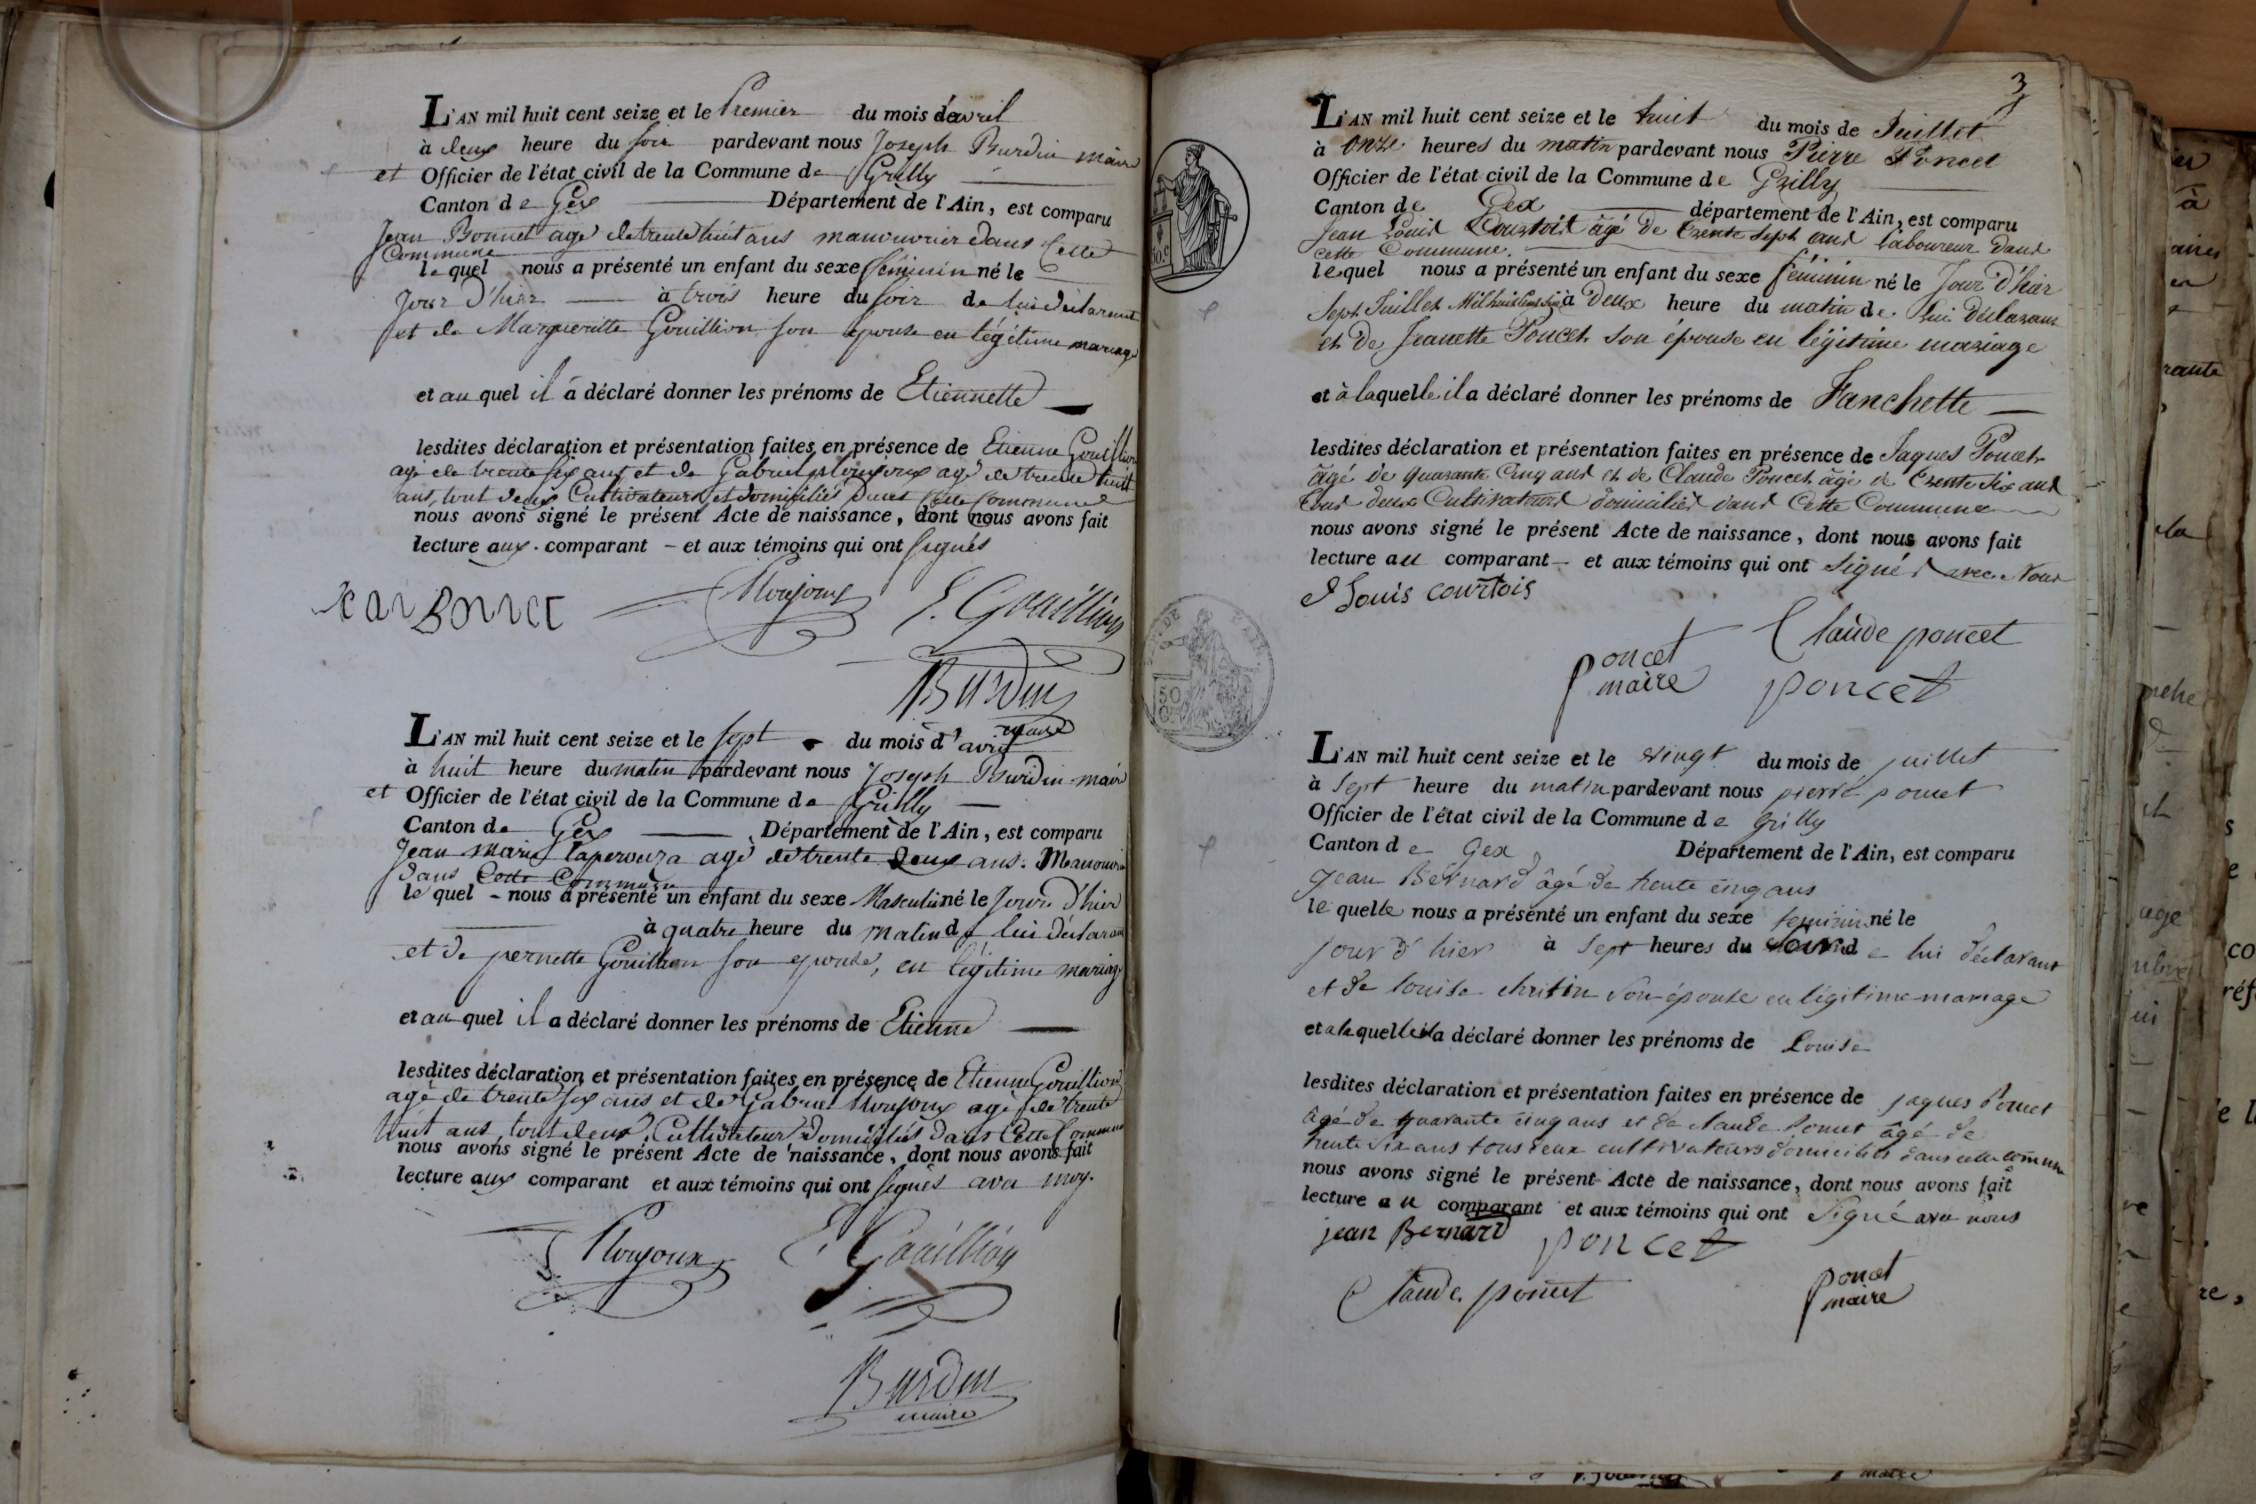 L'AN mil huit cent seize et le Premier du mois d'avril
à deux heure du soir pardevant nous Joseph Burdin maire
et Officier de l'état civil de la Commune de Grilly
Canton de Gex Département de l'Ain, est comparu
Jean Bonnet agé de trente huit ans manouvrier dans Cette
Commune
lequel nous a présenté un enfant du sexe féminin né le
Jour d'hier à trois heure du soir de lui déclarant
et de Margueritte Gouillion son epouse en légitime mariage
et au quel il a déclaré donner les prénoms de Etiennette
lesdites déclaration et présentation faites en présence de Etienne Gouillion
agé de trente six ans et de Gabriel Roujoux agé de trente huit
ans, tout deux Cultivateurs et domiciliés dans Cette Commune
nous avons signé le présent Acte de naissance, dont nous avons fait
lecture aux comparant et aux témoins qui ont signés
Jean Bonnet Roujoux E. Gouillion
Burdin
maire
L'AN mil huit cent seize et le sept du mois d'avril
à huit heure du matin pardevant nous Joseph Burdin maire
et Officier de l'état civil de la Commune de Grilly
Canton de Gex Département de l'Ain, est comparu
Jean Marie Laperouza agé de trente deux ans. Manouvrier
dans Cette Commune
le quel nous a présenté un enfant du sexe Masculin né le Jour d'hier
à quatre heure du matin de lui déclarant
et de pernette Gouillion son epouse, en légitime mariage
et au quel il a déclaré donner les prénoms de Etienne
lesdites déclaration et présentation faites en présence de Etienne Gouillion
agé de trente six ans et de Gabriel Roujoux agé de trente
huit ans, tout deux Cultivateur domiciliés dans Cette Commune
nous avons signé le présent Acte de naissance, dont nous avons fait
lecture aux comparant et aux témoins qui ont signés avec moy.
Roujoux E. Gouillion
Burdin
maire
3
L'AN mil huit cent seize et le huit du mois de Juillet
à Onze heures du matin pardevant nous Pierre Poncet
Officier de l'état civil de la Commune de Grilly
Canton de Gex département de l'Ain, est comparu
Jean Louis Courtois âgé de trente sept ans laboureur dans
cette Commune.
lequel nous a présenté un enfant du sexe féminin né le Jour d'hier
Sept Juillet Mil huit Cent Seize à Deux heure du matin de lui déclarant
et de Jeanette Poncet son épouse en légitime mariage
et à laquelle il a déclaré donner les prénoms de Fanchette
lesdites déclaration et présentation faites en présence de Jaques Poncet
âgé de quarante Cinq ans et de Claude Poncet âgé de trente Six ans
tous deux Cultivateurs domiciliés dans Cette Commune
nous avons signé le présent Acte de naissance, dont nous avons fait
lecture au comparant et aux témoins qui ont Signés avec Nous
J Louis courtois
Claude poncet
poncet
maire
poncet
L'AN mil huit cent seize et le vingt du mois de juillet
à Sept heure du matin pardevant nous pierre poncet
Officier de l'état civil de la Commune de Grilly
Canton de Gex Département de l'Ain, est comparu
Jean Bernard âgé de trente cinq ans
le quelle nous a présenté un enfant du sexe feminin né le
jour d'hier à sept heures du soir de lui déclarant
et de louise chritin son épouse en légitime mariage
et a laquelle il a déclaré donner les prénoms de Louise
lesdites déclaration et présentation faites en présence de jaques Poncet
âgé de quarante cinq ans et de claude Poncet âgé de
trente six ans tous deux cultivateurs domiciliés dans cette commune
nous avons signé le présent Acte de naissance, dont nous avons fait
lecture au comparant et aux témoins qui ont Signé avec nous
jean Bernard poncet
Claude poncet
poncet
maire